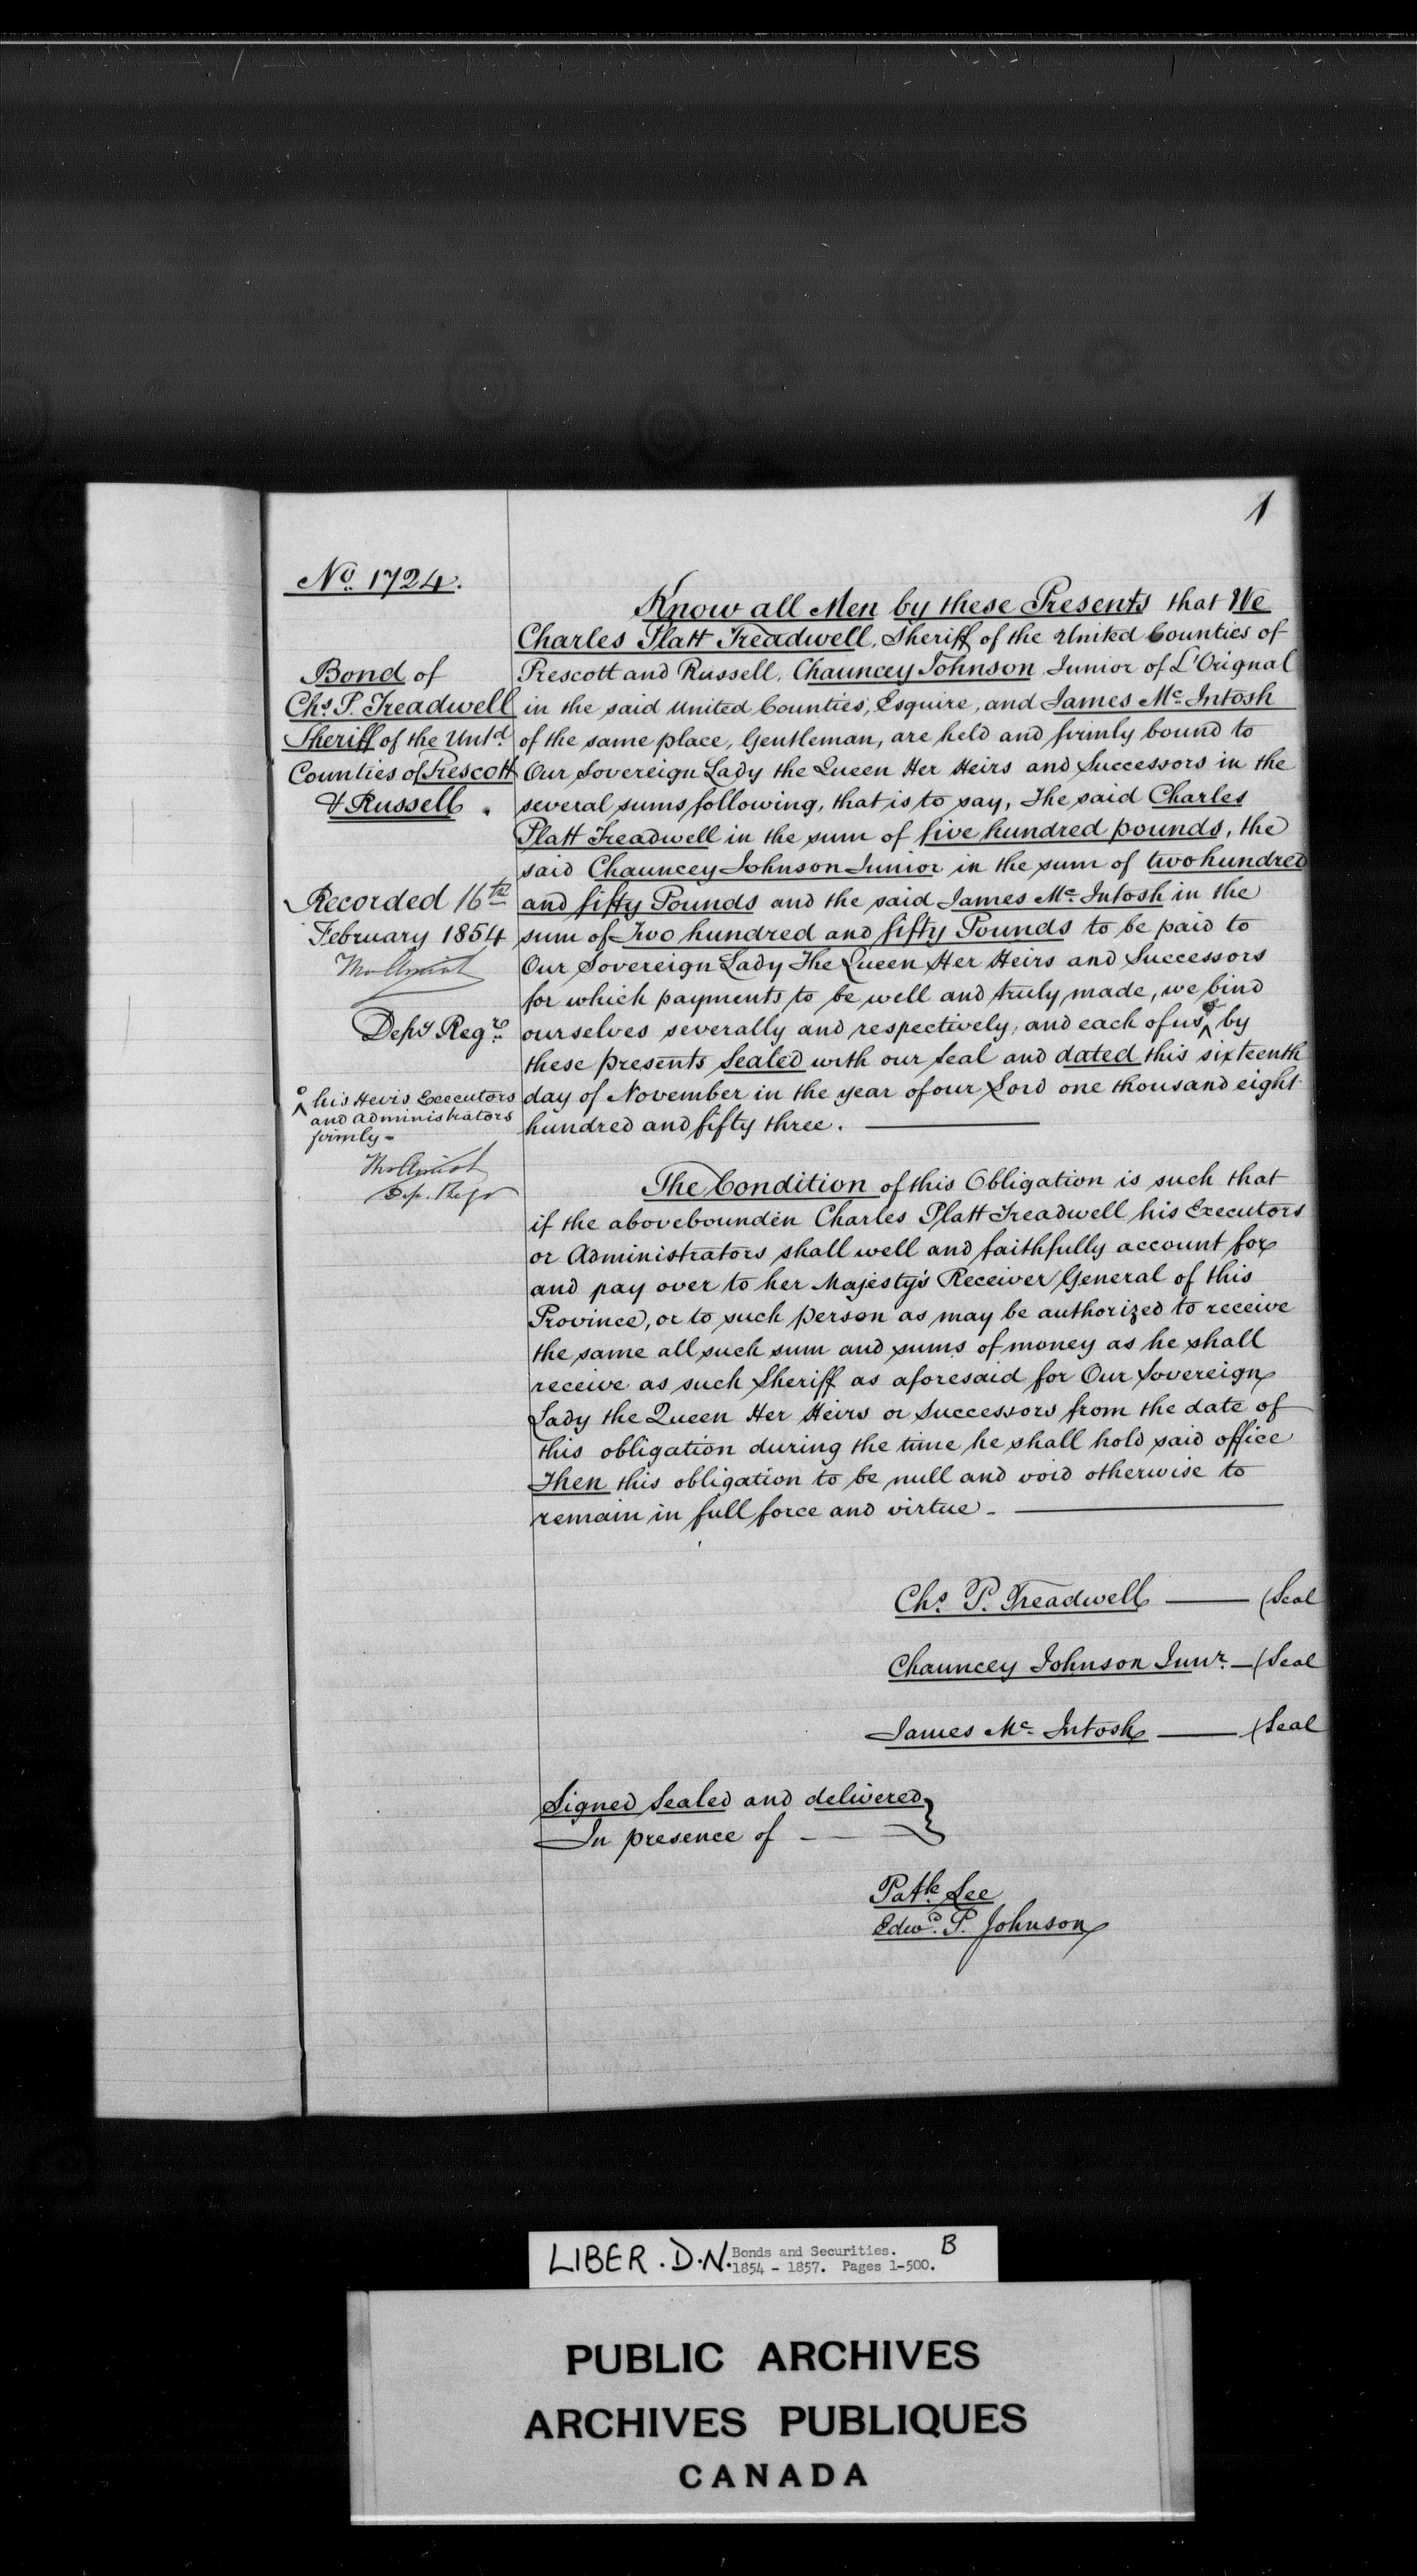 1
No. 1724.
Bond of
Chs. P. Treadwell
Sheriff of the Untd.
Counties of Prescott
& Russell.
Recorded 16th
February 1854
Thos Amiot
Depy Regr.
^ his Heirs Executors
and administrators
firmly -
Thos Amiot
Dep. Regr
Know all Men by these Presents that We
Charles Platt Treadwell, Sheriff of the United Counties of
Prescott and Russell, Chauncey Johnson Junior of L'Orignal
in the said United Counties, Esquire, and James Mc Intosh
of the same place, Gentleman, are held and firmly bound to
Our Sovereign Lady the Queen Her Heirs and Successors in the
several sums following, that is to say, The said Charles
Platt Treadwell in the sum of five hundred pounds, the
said Chauncey Johnson Junior in the sum of two hundred
and fifty Pounds and the said James Mc Intosh in the
sum of Two hundred and fifty Pounds to be paid to
Our Sovereign Lady The Queen Her Heirs and Successors
for which payments to be well and truly made, we bind
ourselves severally and respectively, and each of us ^ by
these presents Sealed with our Seal and dated this sixteenth
day of November in the year of our Lord one thousand eight
hundred and fifty three.
The Condition of this Obligation is such that
if the abovebounden Charles Platt Treadwell his Executors
or Administrators shall well and faithfully account for
and pay over to her Majesty's Receiver General of this
Province, or to such person as may be authorized to receive
the same all such sum and sums of money as he shall
receive as such Sheriff as aforesaid for Our Sovereign
Lady the Queen Her Heirs or Successors from the date of
this obligation during the time he shall hold said office
Then this obligation to be null and void otherwise to
remain in full force and virtue -
Chs. P. Treadwell — (Seal
Chauncey Johnson Junr. — (Seal
James Mc Intosh — (Seal
Signed Sealed and delivered }
In presence of - — }
Patk. Lee
Edwd. P. Johnson
LIBER . D.N. Bonds and Securities. B
1854 - 1857. Pages 1-500.
PUBLIC ARCHIVES
ARCHIVES PUBLIQUES
CANADA